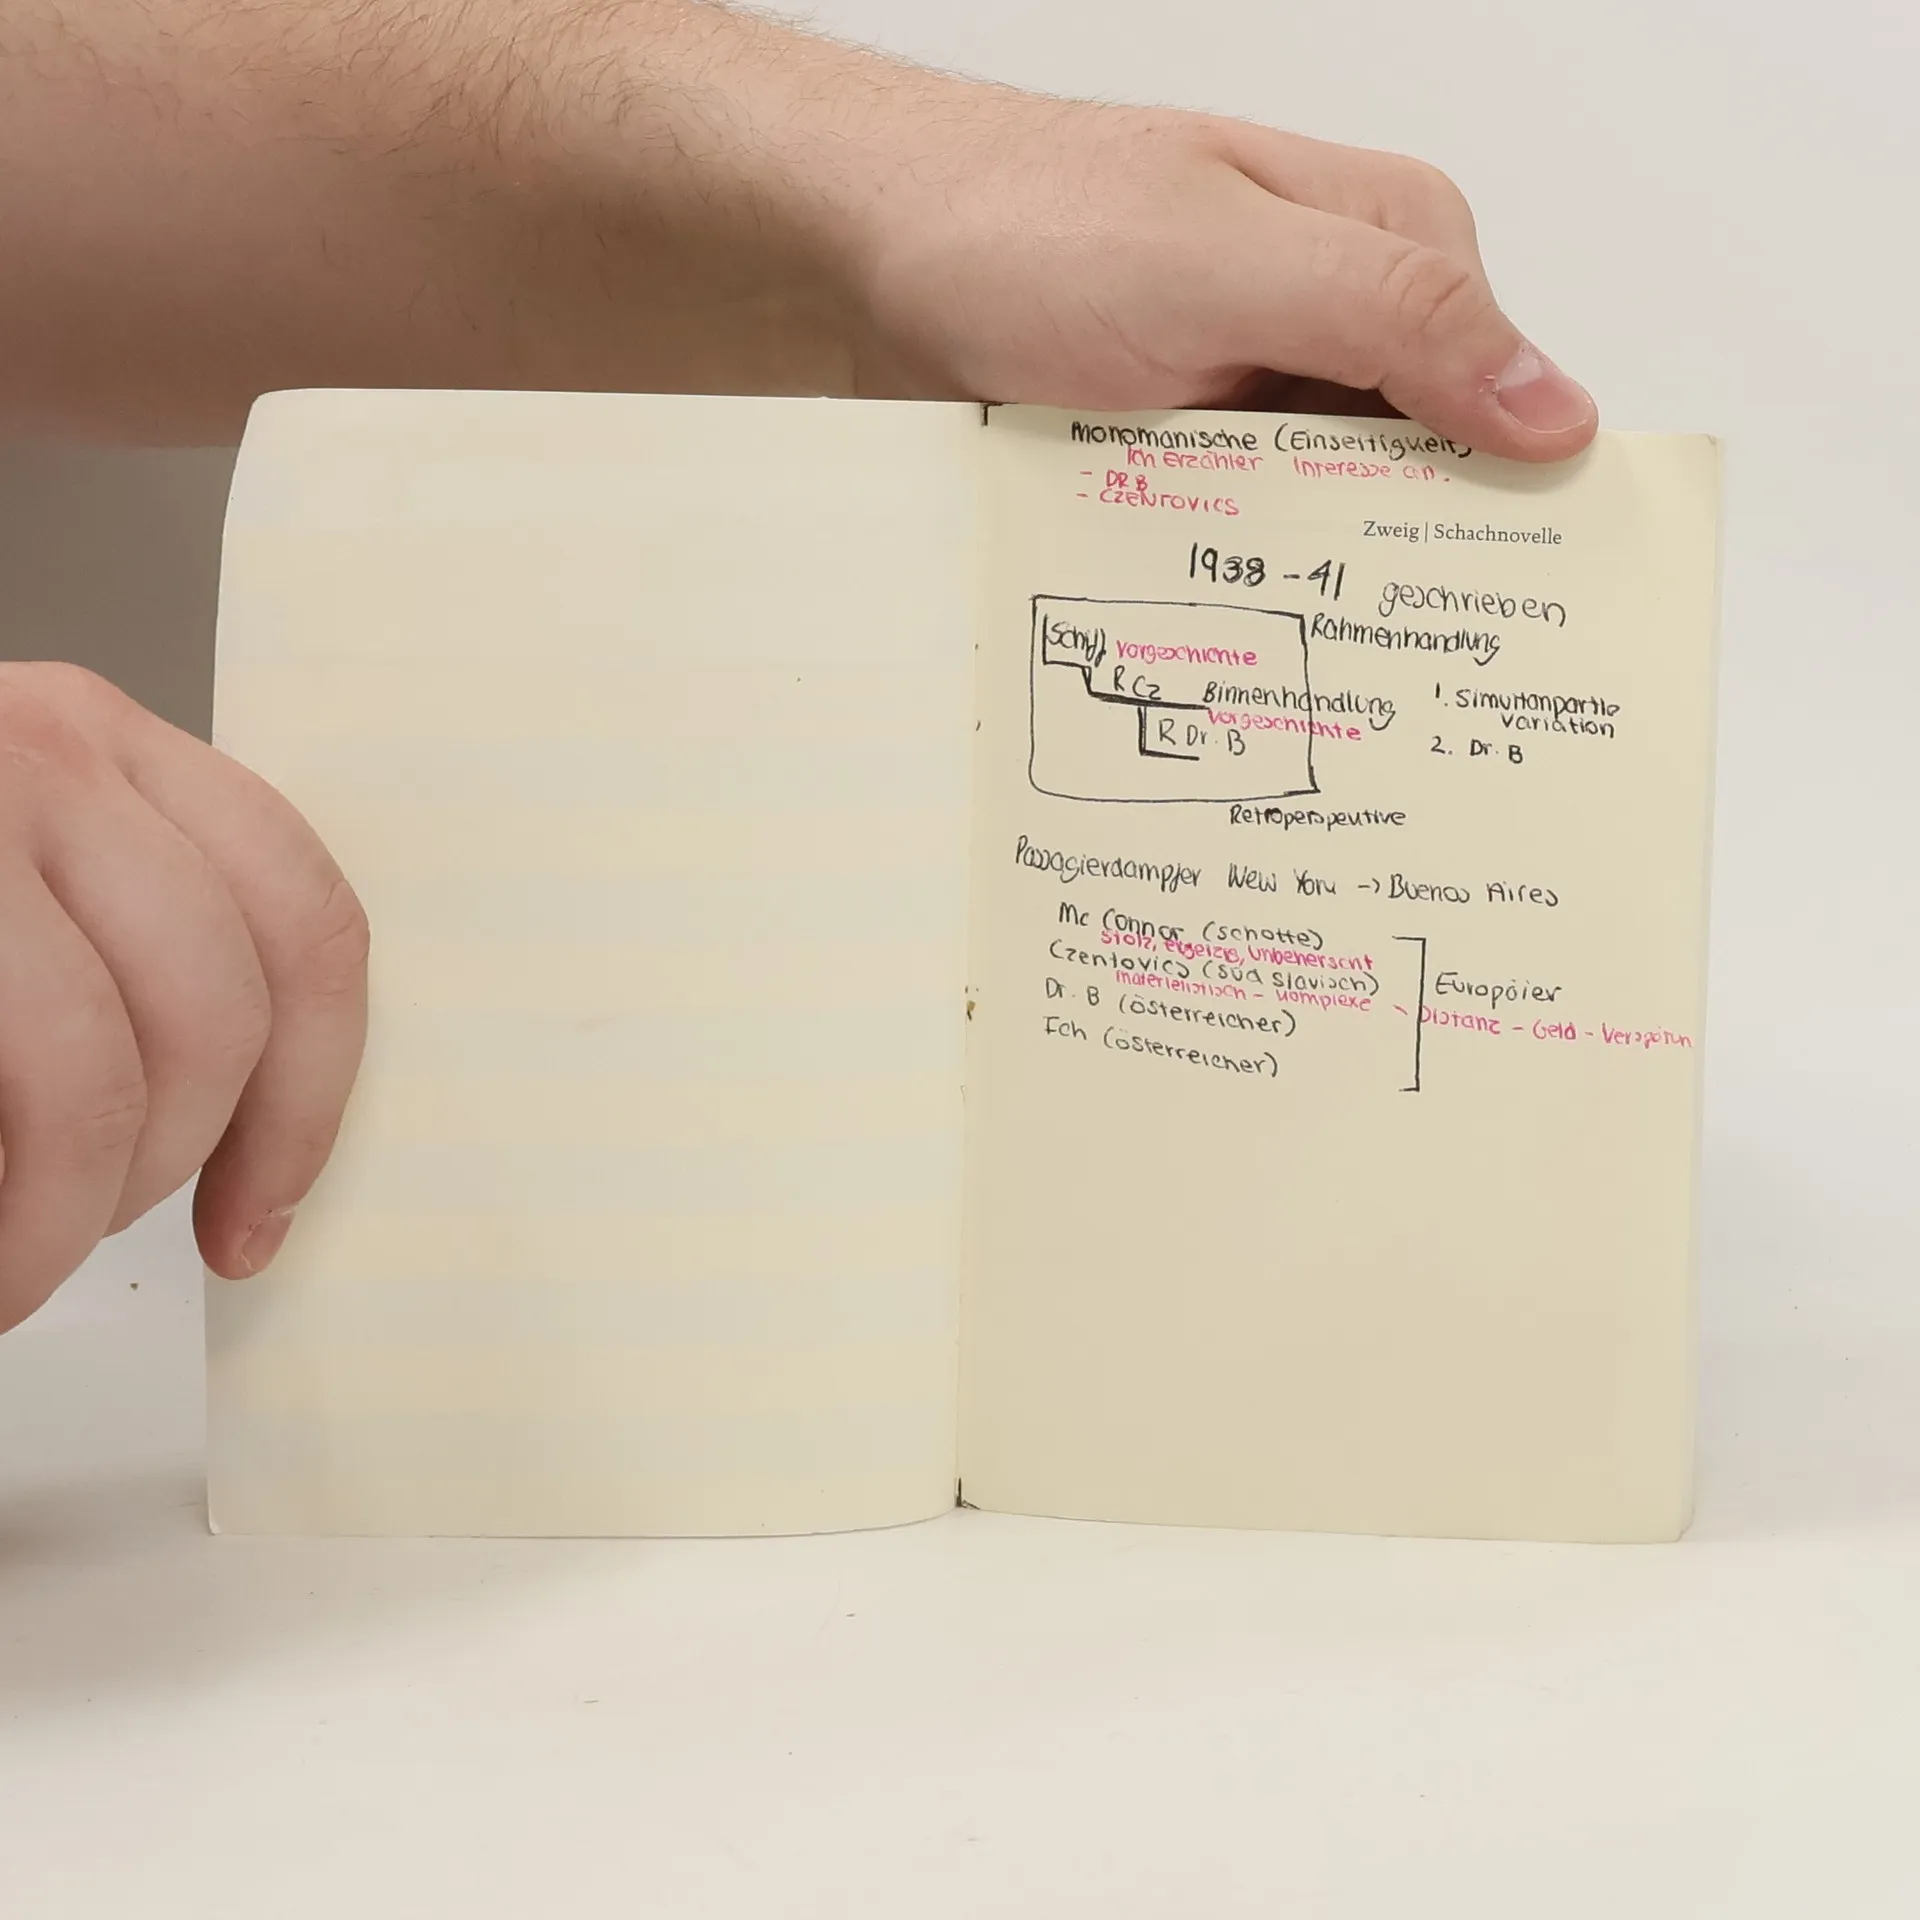 Monomanische (Einseitigkeit)
Ich erzähler Interesse an.
- DR B
- CZENTOVICS
Zweig | Schachnovelle
1938 - 41 geschrieben
Rahmenhandlung
Schiff vorgeschichte
R Cz Binnenhandlung
vorgeschichte
R Dr. B
1. Simultanpartie
variation
2. Dr. B
Retroperspektive
Passagierdampfer New York -> Buenos Aires
Mc Connor (Schotte)
Stolz, ergeizig, unbeherscht
Czentovics (süd slavisch)
materielistisch - komplexe - Distanz - Geld - 
Dr. B (österreicher)
Ich (österreicher)
Europäier